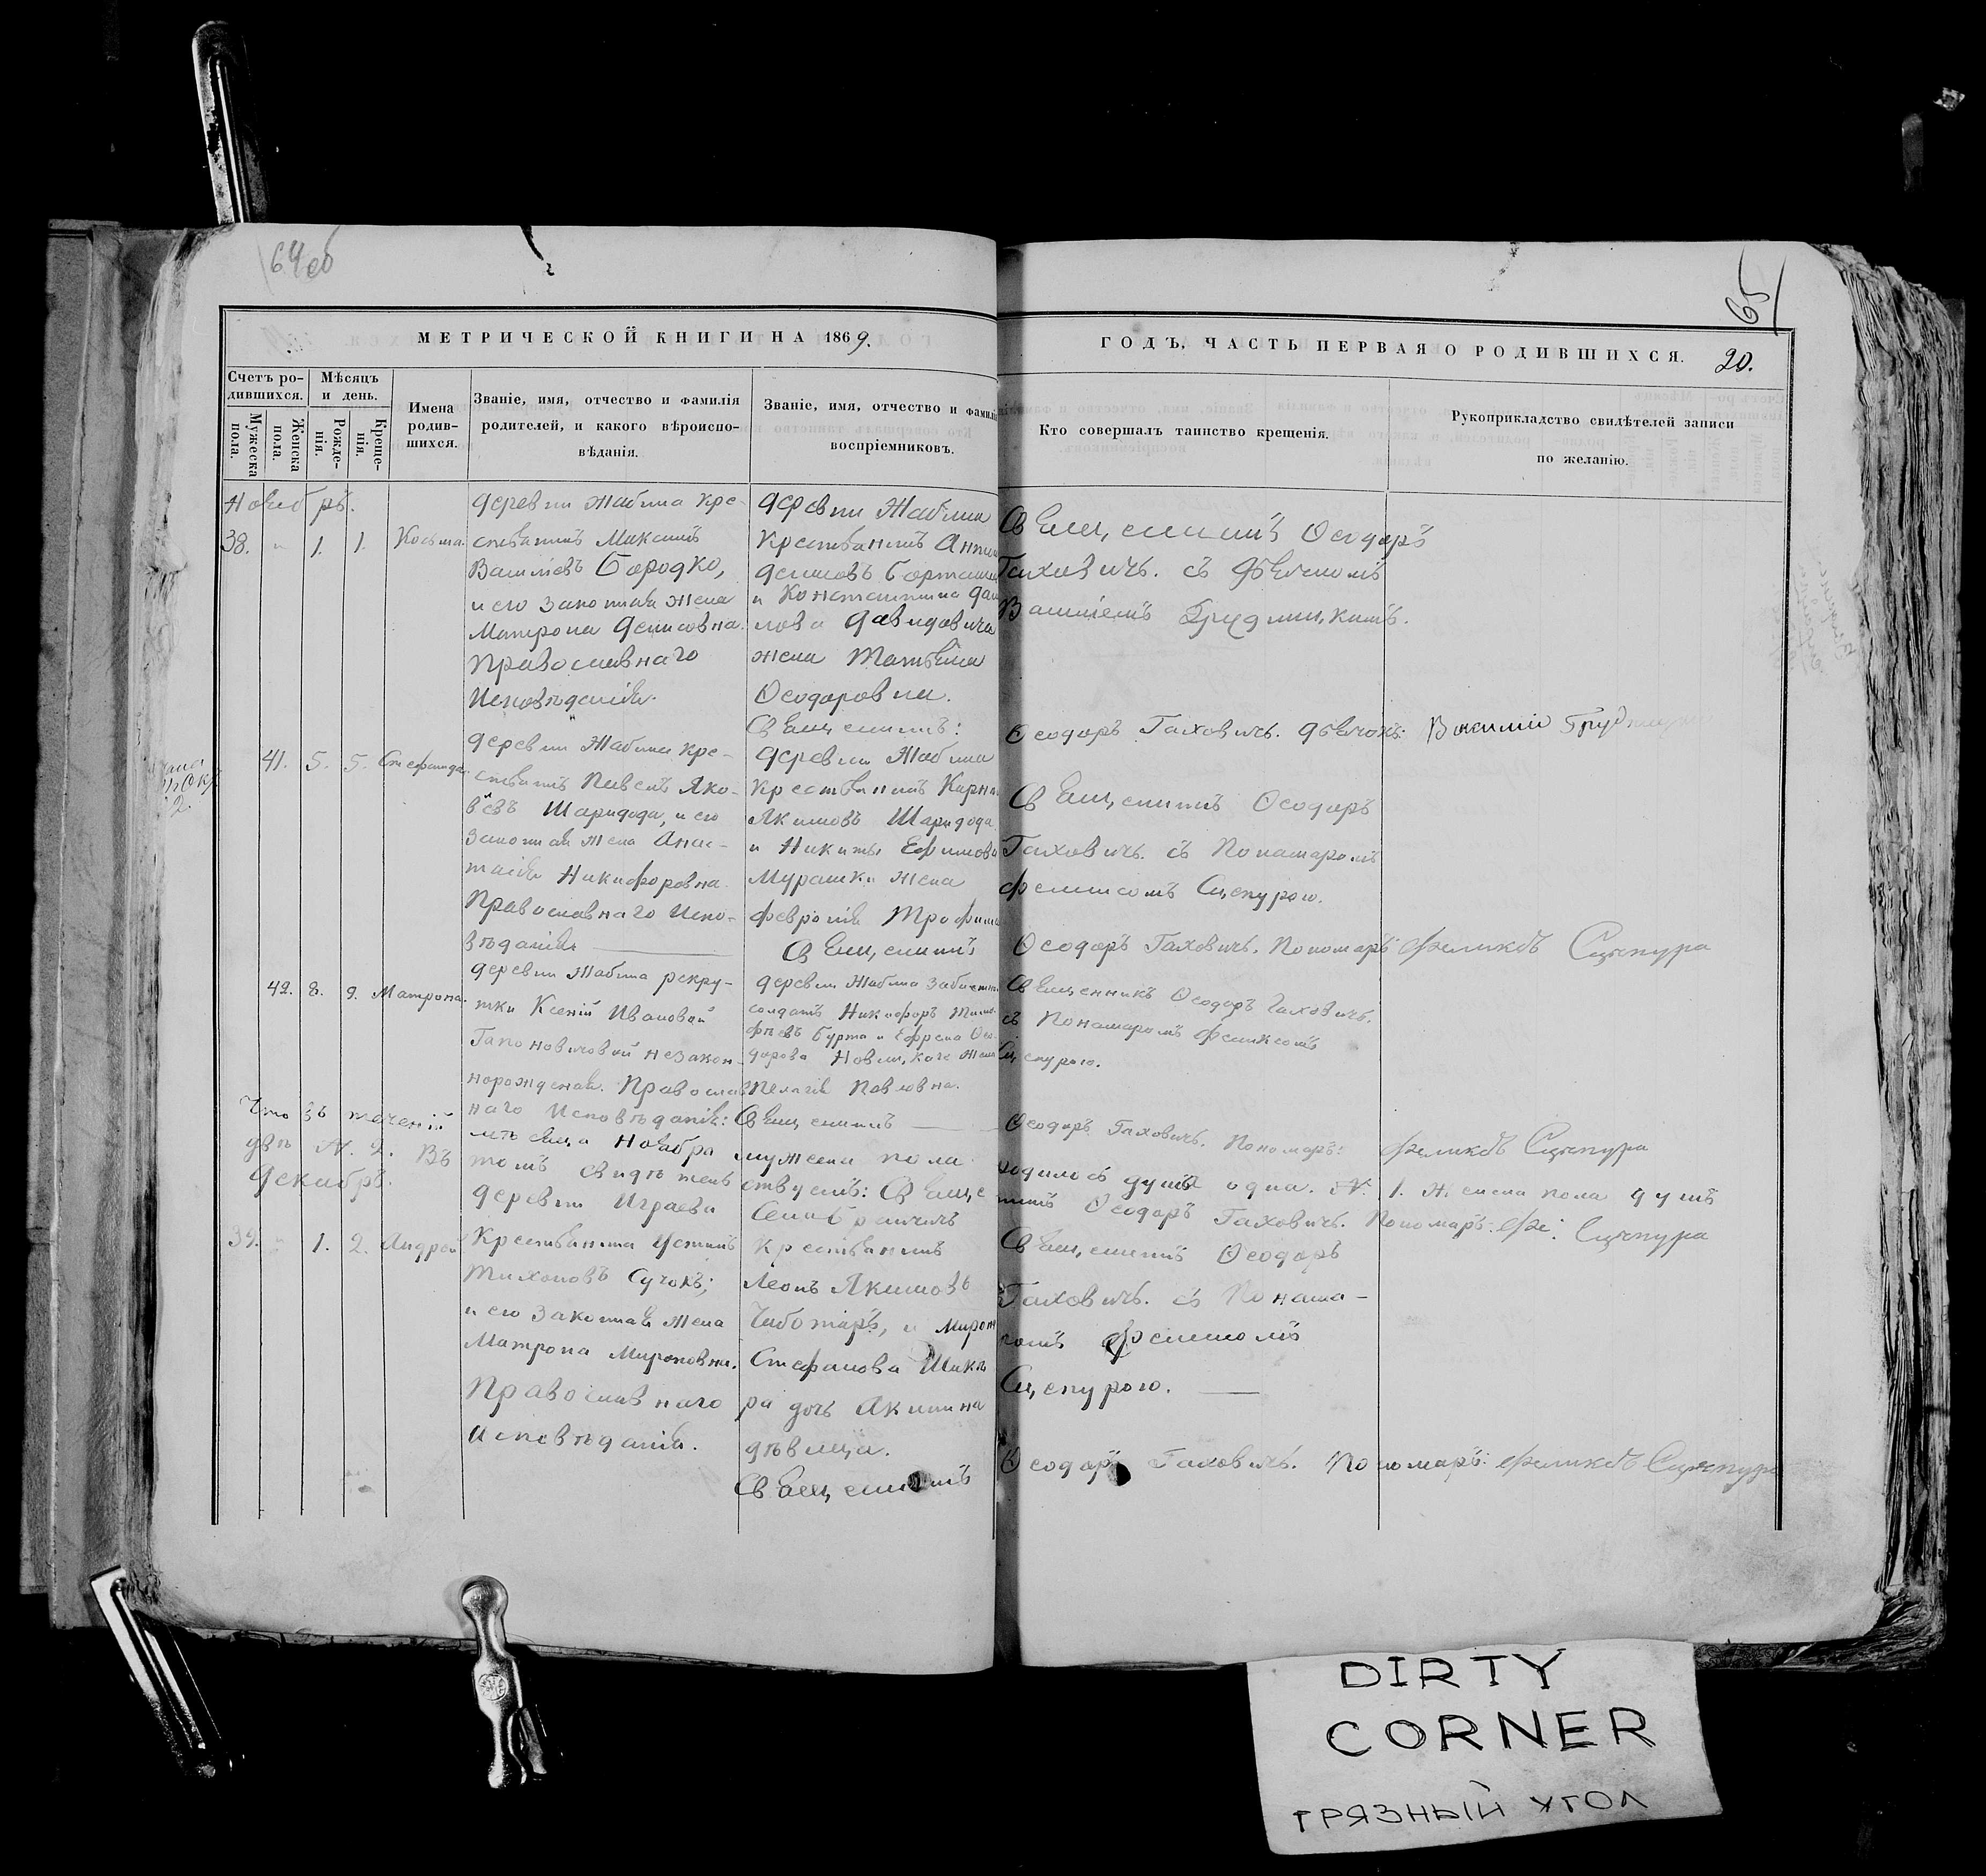 64 об
65
МЕТРИЧЕСКОЙ КНИГИ НА 1869.
ГОДЪ, ЧАСТЬ ПЕРВАЯ О РОДИВШИХСЯ.
20.
Счетъ ро-
дившихся.
Мужеска
пола.
Женска
пола.
Мѣсяцъ
и день.
Рожде-
нія.
Креще-
нія.
Имена
родив-
шихся.
Званіе, имя, отчество и фамилія
родителей, и какого вѣроиспо-
вѣданія.
Званіе, имя, отчество и фамилія
воспріемниковъ.
Кто совершалъ таинство крещенія.
Рукоприкладство свидѣтелей записи
по желанію.
Ноябрь.
38. " 1. 1. Косьма.
деревни Жабина кре-
стьянинъ Максимъ
Василіевъ Бородко,
и его законная жена
Матрона Денисовна.
Православнаго
Исповѣданія.
деревни Жабина
Крестьянинъ
Денисовъ
и Константина
лова Давидовича
жена Татьяна
Ѳеодоровна.
Священникъ:
Священникъ Ѳеодоръ
Гаховичъ. съ дьячкомъ
Василіемъ Грудницкимъ.
Ѳеодоръ Гаховичъ. Дьячокъ: Василій
41. 5. 5. Стефанида
деревни Жабина кре-
стьянинъ Яко-
влевъ Шаридода, и его
законная жена Анас-
тасія Никифоровна
Православнаго Испо-
вѣданія
деревни Жабина
Крестьянинъ
Якимовъ Шаридода
и Никиты Ефимова
Мурашки жена
Февронія Трофима
Священникъ
Священникъ Ѳеодоръ
Гаховичъ. съ Понамаромъ
Феликсомъ Сцепурою.
Ѳеодоръ Гаховичъ. Пономаръ: Феликсъ Сцепура
42. 8. 9. Матрона.
деревни Жабина рекру-
тки Ксеніи Ивановой
Гапоновичовой незакон-
норожденая. Православ
наго Исповѣданія:
деревни Жабина
солдатъ Никифоръ
Бурта и Ефрема Ѳео-
дорова жена
Пелагія Павловна.
Священникъ
Священникъ Ѳеодоръ Гаховичъ.
съ Понамаромъ Феликсомъ
Сцепурою.
Ѳеодоръ Гаховичъ. Пономаръ: Феликсъ Сцепура
Что въ теченіи мѣсяца Ноября мужеска пола родилось душа одна. №. 1. Женска пола душъ
двѣ №. 2. Въ томъ свидѣтельствуемъ: Священникъ Ѳеодоръ Гаховичъ. Пономаръ: Фе: Сцепура
Декабрь.
39. " 1. 2. Андрей
деревни Играева
Крестьянина Устинъ
Тихоновъ Сучокъ;
и его законная жена
Матрона Мироновна.
Православнаго
Исповѣданія.
Крестьянинъ
Леонъ Якимовъ
Чиботарь, и Мирон
Стефанова
ра дочь Акилина
дѣвица.
Священникъ
Священникъ Ѳеодоръ
Гаховичъ. съ Понама-
ромъ Феликсомъ
Сцепурою.
Ѳеодоръ Гаховичъ. Пономаръ: Феликсъ Сцепура
DIRTY
CORNER
ГРЯЗНЫЙ УГОЛ